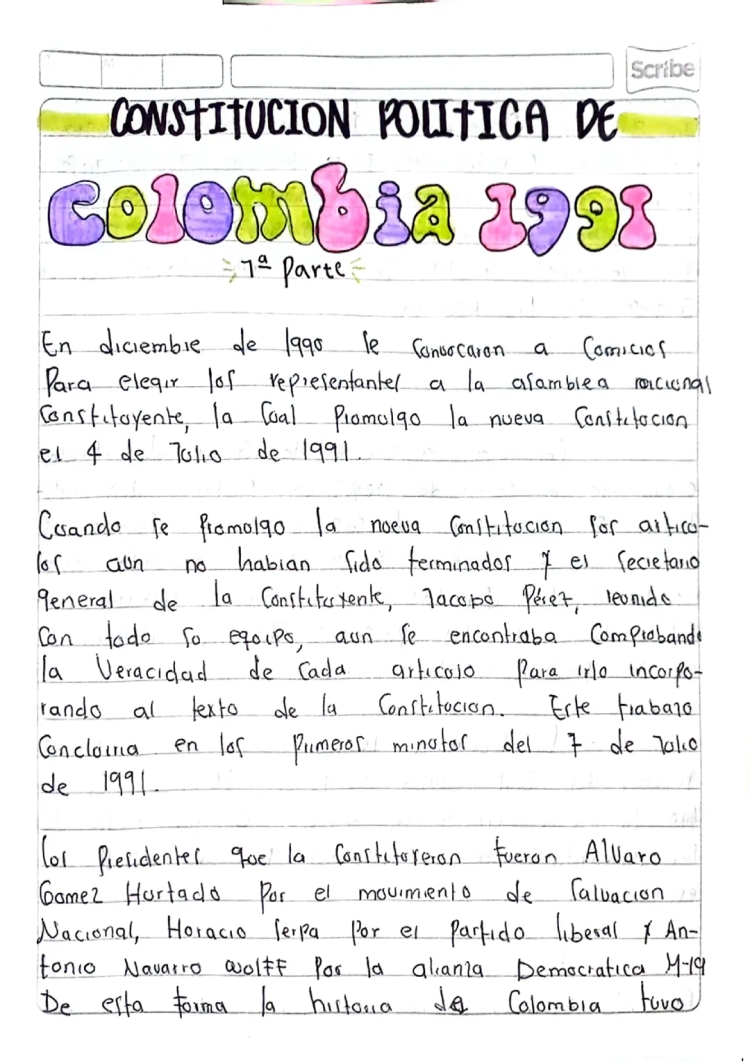 Scribe
CONSTITUCION POLITICA DE
COLOMBIA 1991
1ª Parte
En diciembre de 1990 se convocaron a comicios
Para elegir los representantes a la asamblea nacional
Constituyente, la cual promulgo la nueva Constitucion
el 4 de Julio de 1991.
Cuando se promulgo la nueva constitucion sus articu-
los aun no habian sido terminados y el secretario
general de la Constituyente, Jacobo Pérez, reunido
con todo su equipo, aun se encontraba comprobando
la veracidad de cada articulo para irlo incorpo-
rando al texto de la Constitucion. Este trabajo
Concluiria en los primeros minutos del 7 de Julio
de 1991.
los presidentes que la constituyeron fueron Alvaro
Gomez Hurtado por el movimiento de salvacion
Nacional, Horacio serpa por el partido liberal y An-
tonio Navarro wolff por la alianza Democratica M-19
De esta forma la historia de Colombia tuvo